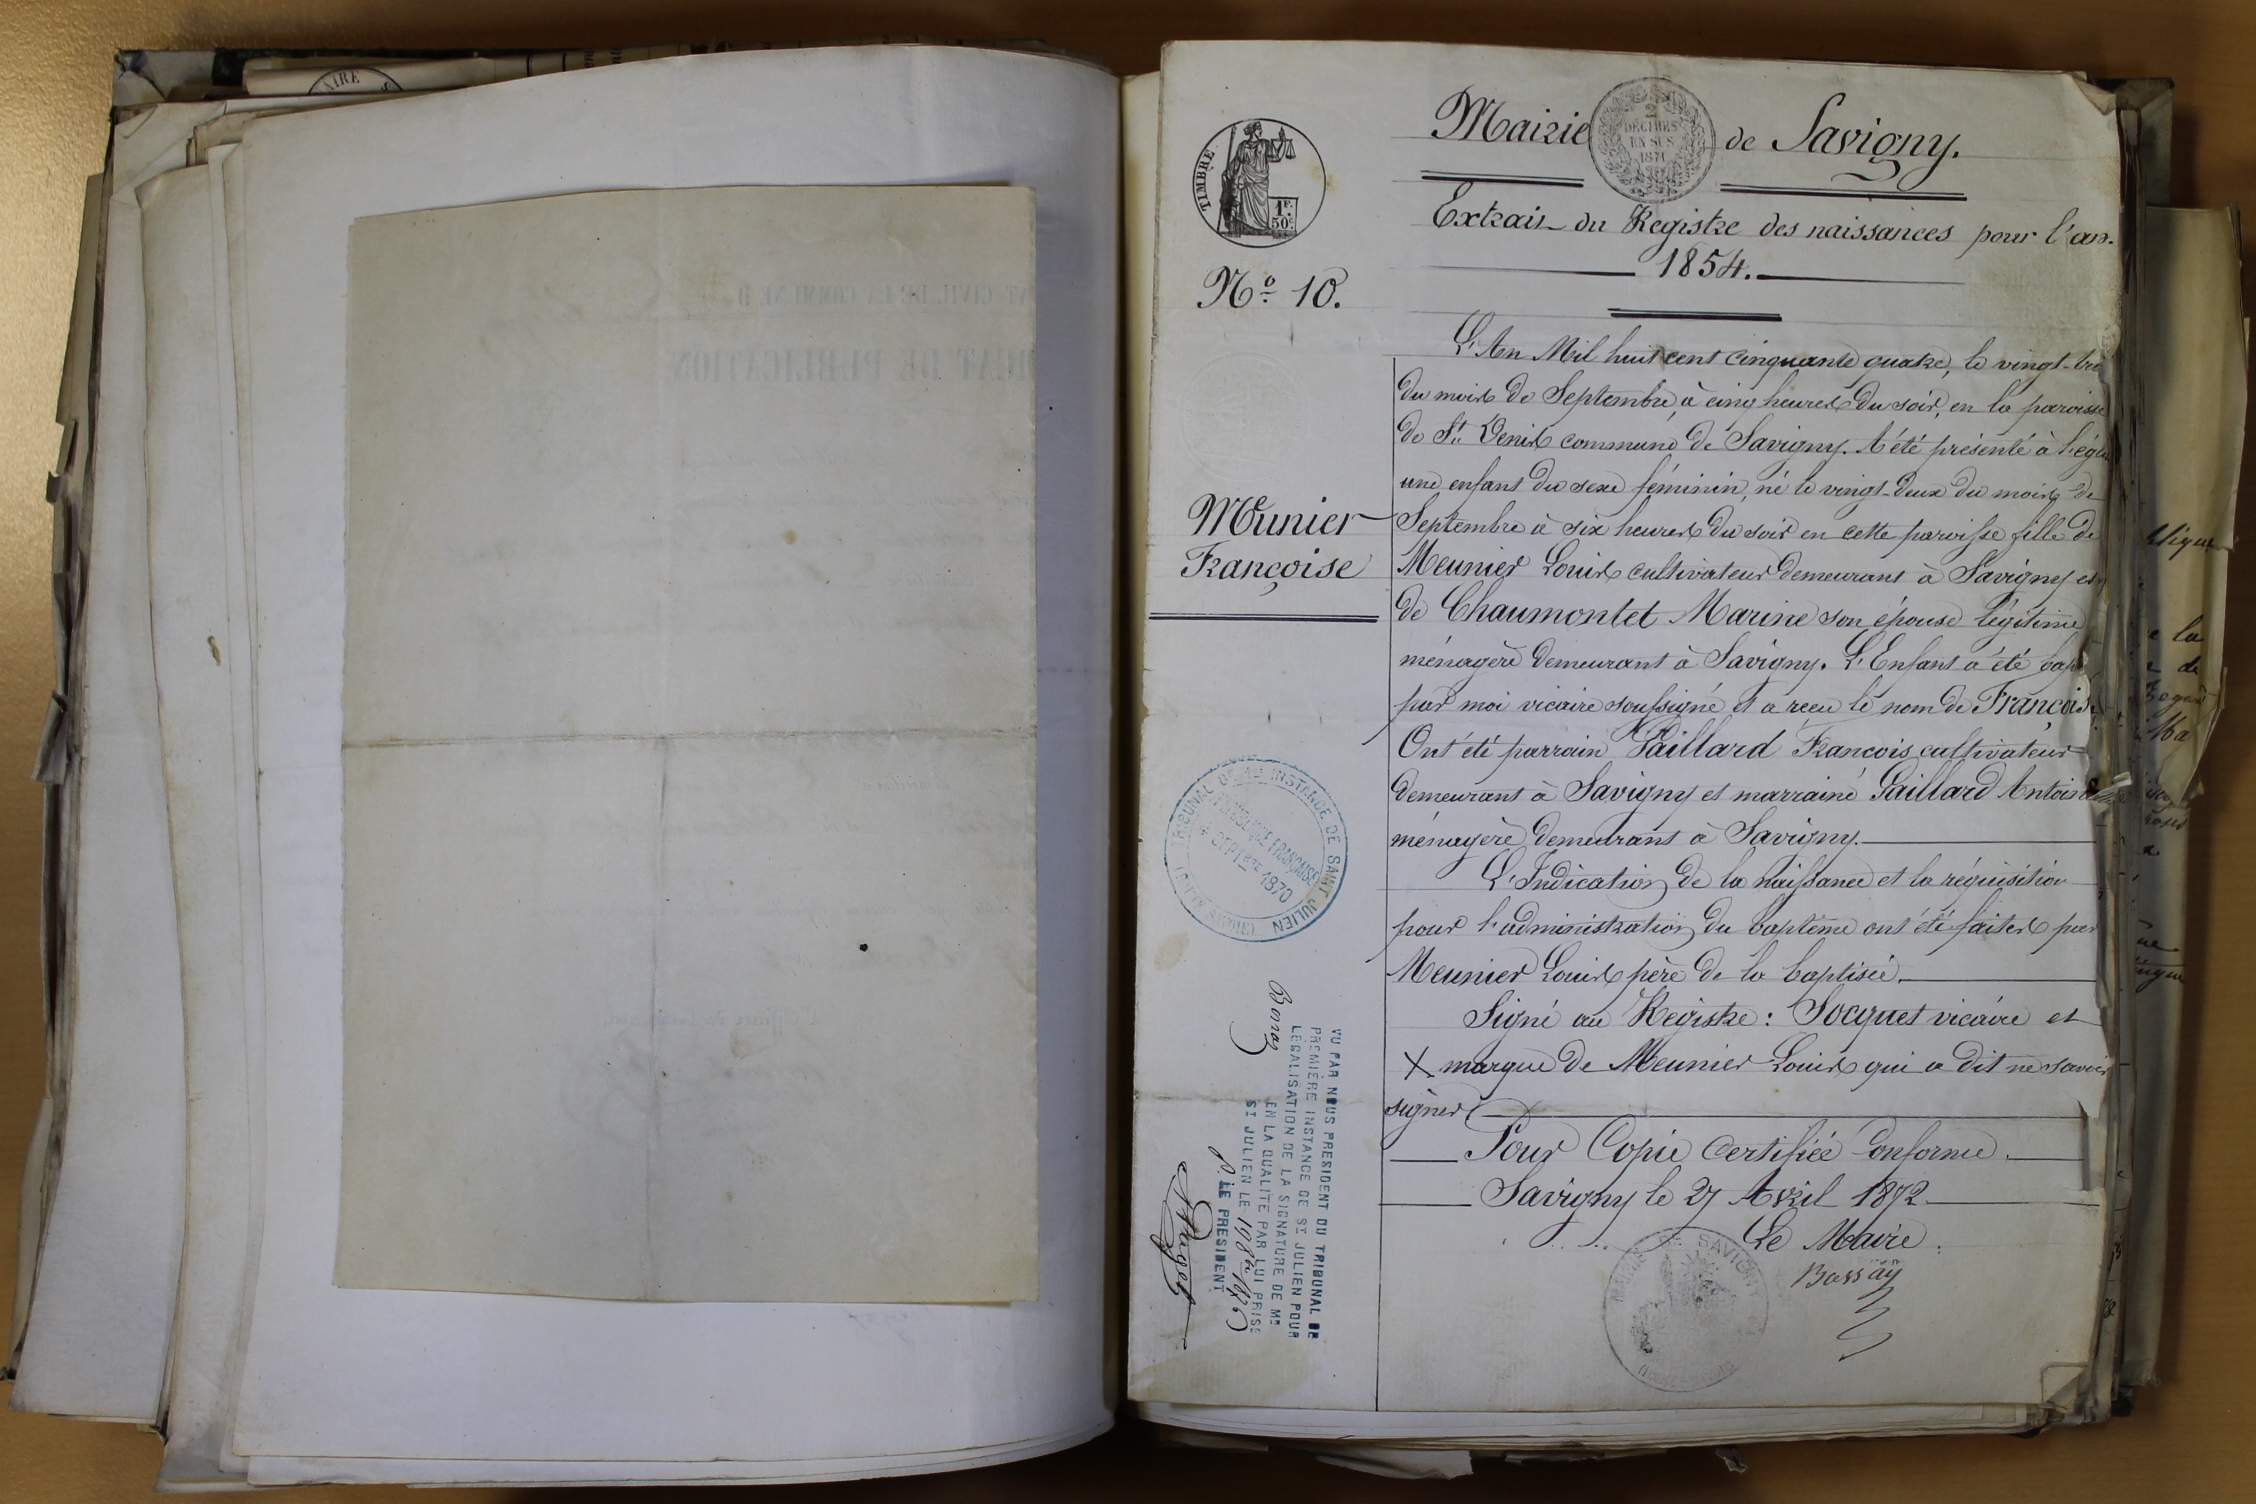 AIRE
TIMBRE
1F.
50c.
2
DÉCIMES
EN SUS
1871
Mairie de Savigny.
Extrait du Registre des naissances pour l'an.
1854.
No 10.
L'An Mil huit cent cinquante quatre, le vingt-tro
du mois de Septembre, à cinq heures du soir, en la paroisse
de St Denis commune de Savigny. A été présenté à l'égli
une enfant du sexe féminin, né le vingt-deux du mois de
Meunier
Françoise
Septembre à six heures du soir en cette paroisse fille de
Meunier Louis cultivateur demeurant à Savigny et
de Chaumontet Marine son épouse légitime
ménagère demeurant à Savigny. L'Enfant a été bap
par moi vicaire soussigné et a reçu le nom de Françoise
Ont été parrain Gaillard Francois cultivateur
demeurant à Savigny et marraine Gaillard Antoi
ménagère demeurant à Savigny.
L'Indication de la naissance et la réquisition
pour l'administration du baptême ont été faites par
Meunier Louis père de la baptisée.
Signé au Registre : Socquet vicaire et
X marque de Meunier Louis qui a dit ne savoir
signer
Pour Copie Certifiée Conforme.
Savigny le 27 Avril 1872
Le Maire
MAIRIE DE SAVIGNY
TRIBUNAL DE 1re INSTANCE DE SAINT JULIEN
RÉPUBLIQUE FRANÇAISE
4 SEPTBRE 1870
VU PAR NOUS PRESIDENT DU TRIBUNAL DE
PREMIÈRE INSTANCE DE ST JULIEN POUR
LÉGALISATION DE LA SIGNATURE DE MR
EN LA QUALITÉ PAR LUI PRISE
ST JULIEN LE
P. LE PRESIDENT